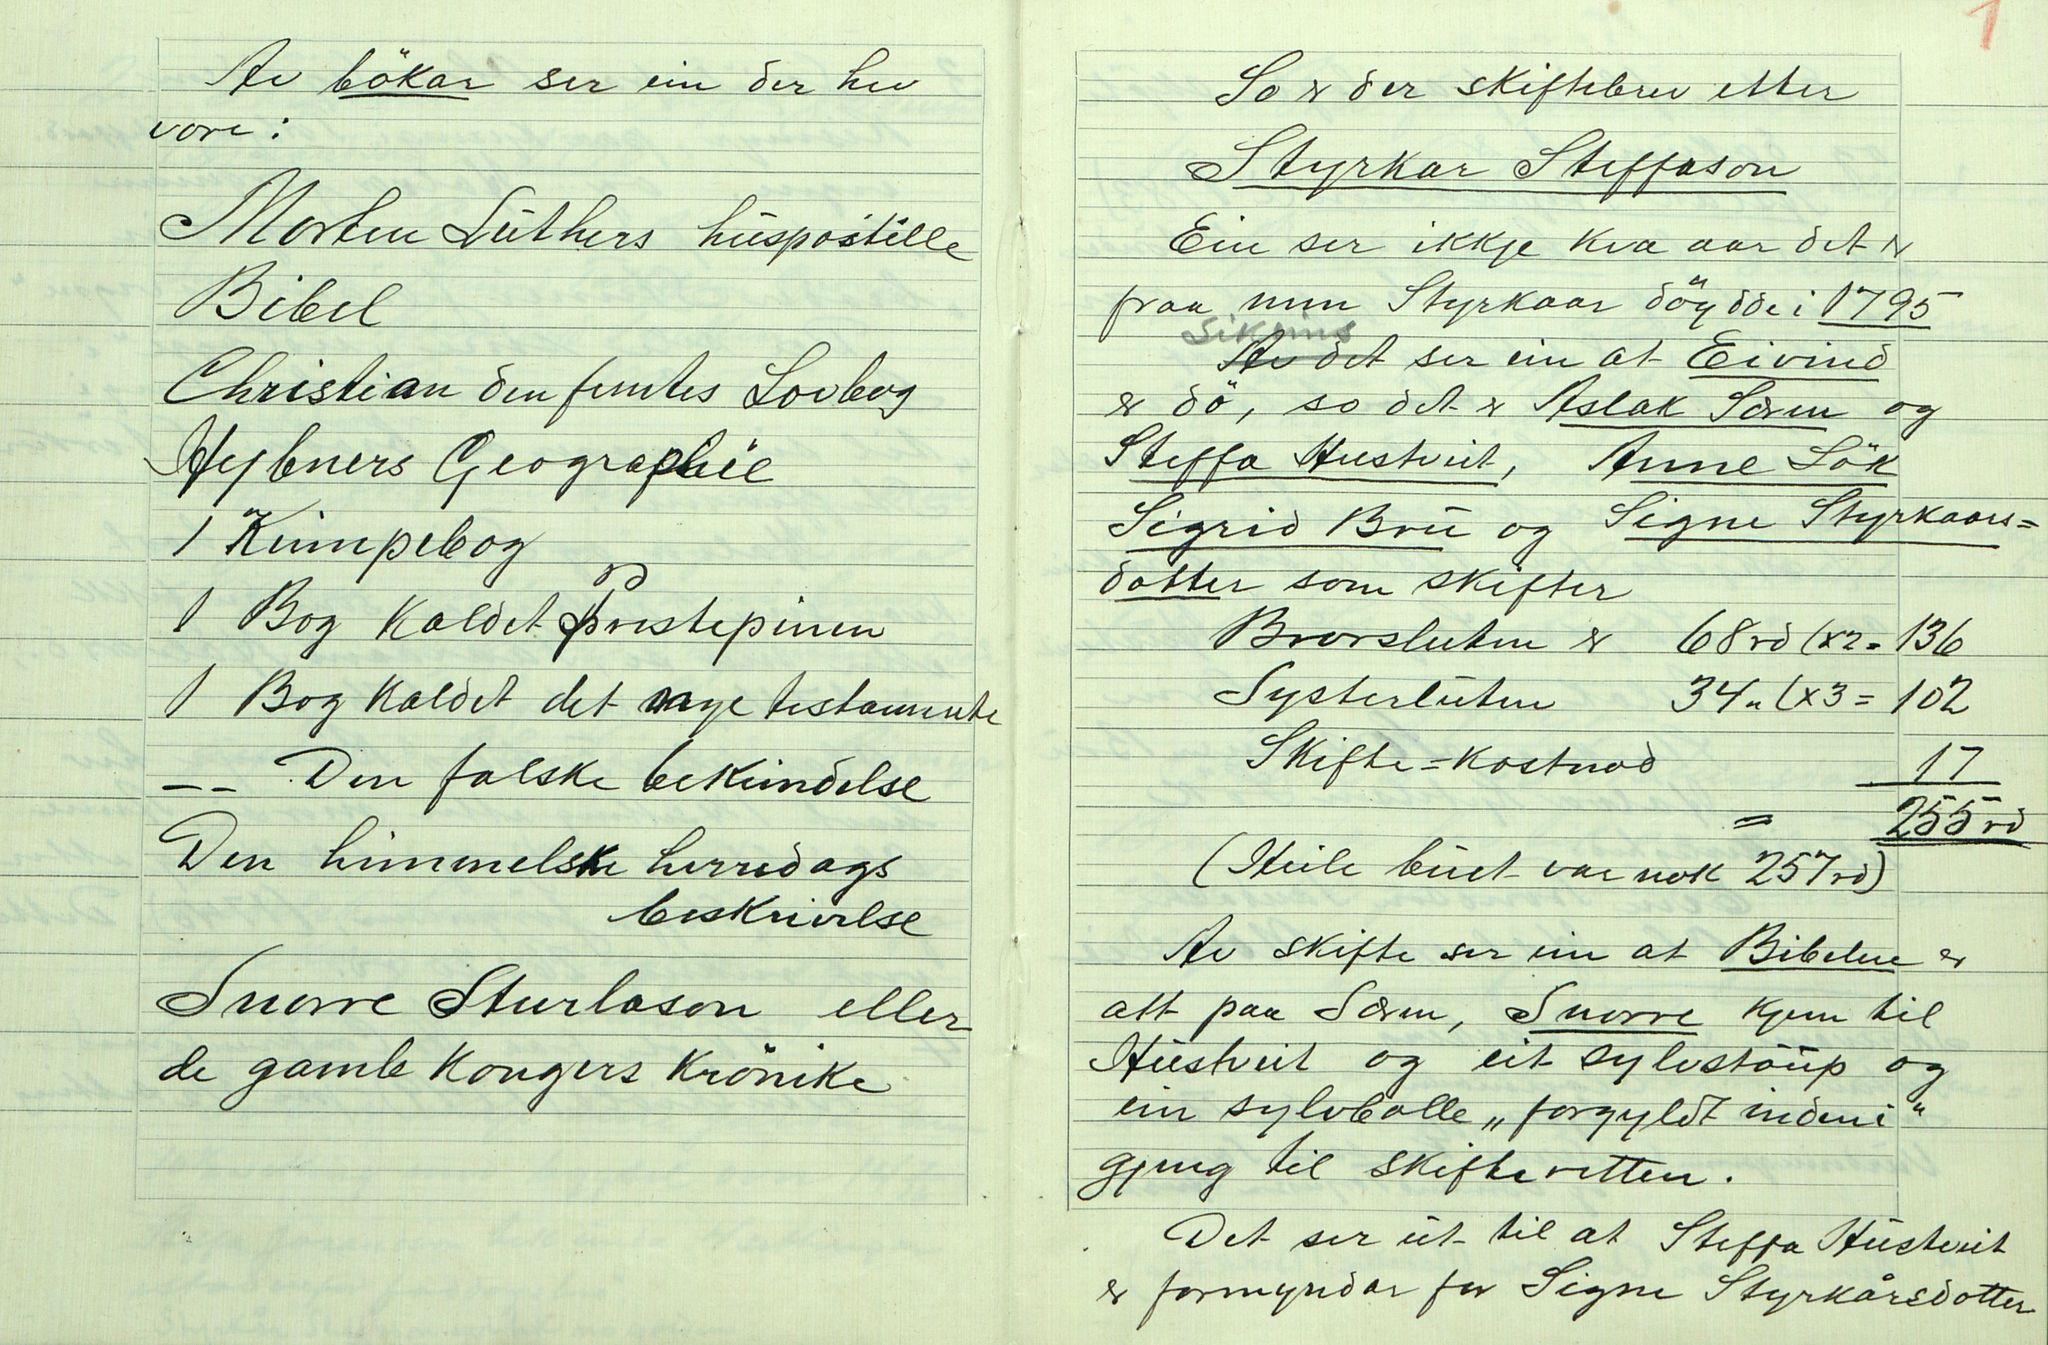 Av bökar ser ein der hev
vore:
Morten Luthers huspostille
Bibel
Christian den femtes Lovbog
Hybners Geographie
1 Kimpebog
1 Bog kaldet præstepinen
1 Bog kaldet det nye testamente
-- Den falske bekiendelse
Den himmelske herredags
beskrivelse
Snorre Sturlason eller
de gamle kongers krönike
1
So er der skiftebrev etter
Styrkar Steffason
Ein ser ikkje kva aar det er
fraa, men Styrkaar döydde i 1795
Av det ser ein at Eivind
er dö, so det er Aslak Særen og
Steffa Hustveit, Anne Lök
Sigrid Bru og Signe Styrkaars=
dotter som skifter
Brorsluten er 68 rd (x2= 136
Systerluten 34 " (x3= 102
Skifte=kostnad 17
= 255 rd
(Heile buet var nok 257 rd)
Av skifte ser ein at Bibelen er
att paa Særen, Snorre kjem til
Hustveit og eit sylvstaup og
ein sylvbolle „forgyldt indeni"
gjeng til skifteretten.
Det ser ut til at Steffa Hustveit
er formyndar for Signe Styrkårsdotter